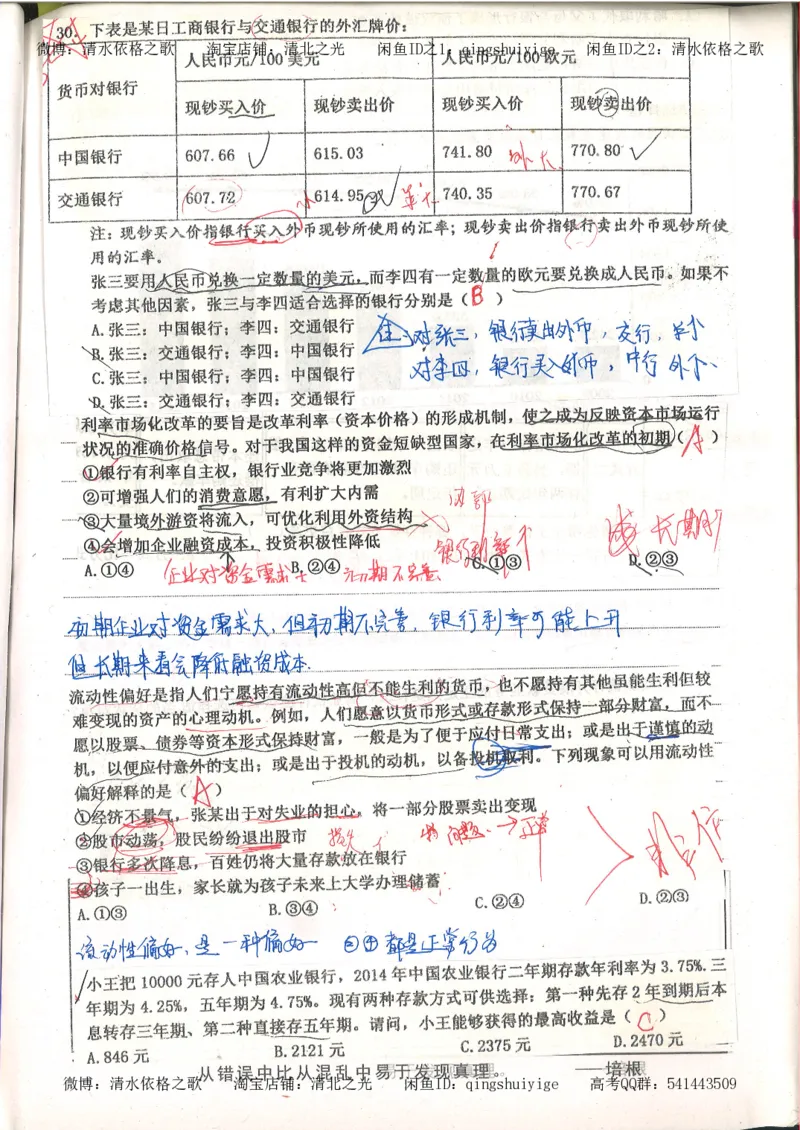 30. 下表是某日工商银行与交通银行的外汇牌价：
微博：清水依格之歌 淘宝店铺：清北之光 闲鱼ID之1：qingshuiyige 闲鱼ID之2：清水依格之歌
货币对银行 人民币元/100美元 人民币元/100欧元
现钞买入价 现钞卖出价 现钞买入价 现钞卖出价
中国银行 607.66 615.03 741.80 770.80
交通银行 607.72 614.95 740.35 770.67
注：现钞买入价指银行买入外币现钞所使用的汇率；现钞卖出价指银行卖出外币现钞所使
用的汇率。
张三要用人民币兑换一定数量的美元，而李四有一定数量的欧元要兑换成人民币。如果不
考虑其他因素，张三与李四适合选择的银行分别是（ B ）
A.张三：中国银行；李四：交通银行
B.张三：交通银行；李四：中国银行
C.张三：中国银行；李四：中国银行
D.张三：交通银行；李四：交通银行
对张三，银行卖出外币，交行
对李四，银行买入外币，中行
利率市场化改革的要旨是改革利率（资本价格）的形成机制，使之成为反映资本市场运行
状况的准确价格信号。对于我国这样的资金短缺型国家，在利率市场化改革的初期（ A ）
①银行有利率自主权，银行业竞争将更加激烈
②可增强人们的消费意愿，有利扩大内需
③大量境外游资将流入，可优化利用外资结构
④会增加企业融资成本，投资积极性降低
A.①④ B.②④ C.①③ D.②③
企业对资金需求大 初期不完善
长期
初期企业对资金需求大，但初期不完善，银行利率可能上升
但长期来看会降低融资成本.
流动性偏好是指人们宁愿持有流动性高但不能生利的货币，也不愿持有其他虽能生利但较
难变现的资产的心理动机。例如，人们愿意以货币形式或存款形式保持一部分财富，而不
愿以股票、债券等资本形式保持财富，一般是为了便于应付日常支出；或是出于谨慎的动
机，以便应付意外的支出；或是出于投机的动机，以备投机取利。下列现象可以用流动性
偏好解释的是（ A ）
①经济不景气，张某出于对失业的担心，将一部分股票卖出变现
②股市动荡，股民纷纷退出股市
③银行多次降息，百姓仍将大量存款放在银行
④孩子一出生，家长就为孩子未来上大学办理储蓄
→正常
A.①③ B.③④ C.②④ D.②③
流动性偏好，是一种偏好 ②④都是正常行为
小王把10000元存入中国农业银行，2014年中国农业银行二年期存款年利率为3.75%.三
年期为4.25%，五年期为4.75%。现有两种存款方式可供选择：第一种先存2年到期后本
息转存三年期、第二种直接存五年期。请问，小王能够获得的最高收益是（ C ）
A.846元 B.2121元 C.2375元 D.2470元
从错误中比从混乱中易于发现真理。 ——培根
微博：清水依格之歌 淘宝店铺：清北之光 闲鱼ID：qingshuiyige 高考QQ群：541443509